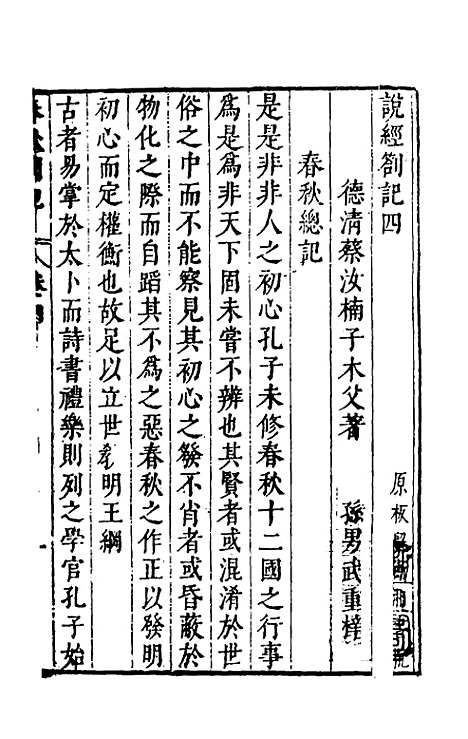 說經劄記四
德清蔡汝楠子木父著 孫男武重梓
春秋總記
是是非非人之初心孔子未修春秋十二國之行事
爲是爲非天下固未嘗不辨也其賢者或混淆於世
俗之中而不能察見其初心之發不肖者或昏蔽於
物化之際而自蹈其不爲之惡春秋之作正以發明
初心而定權衡也故足以立世教明王綱
古者易掌於太卜而詩書禮樂則列之學官孔子始